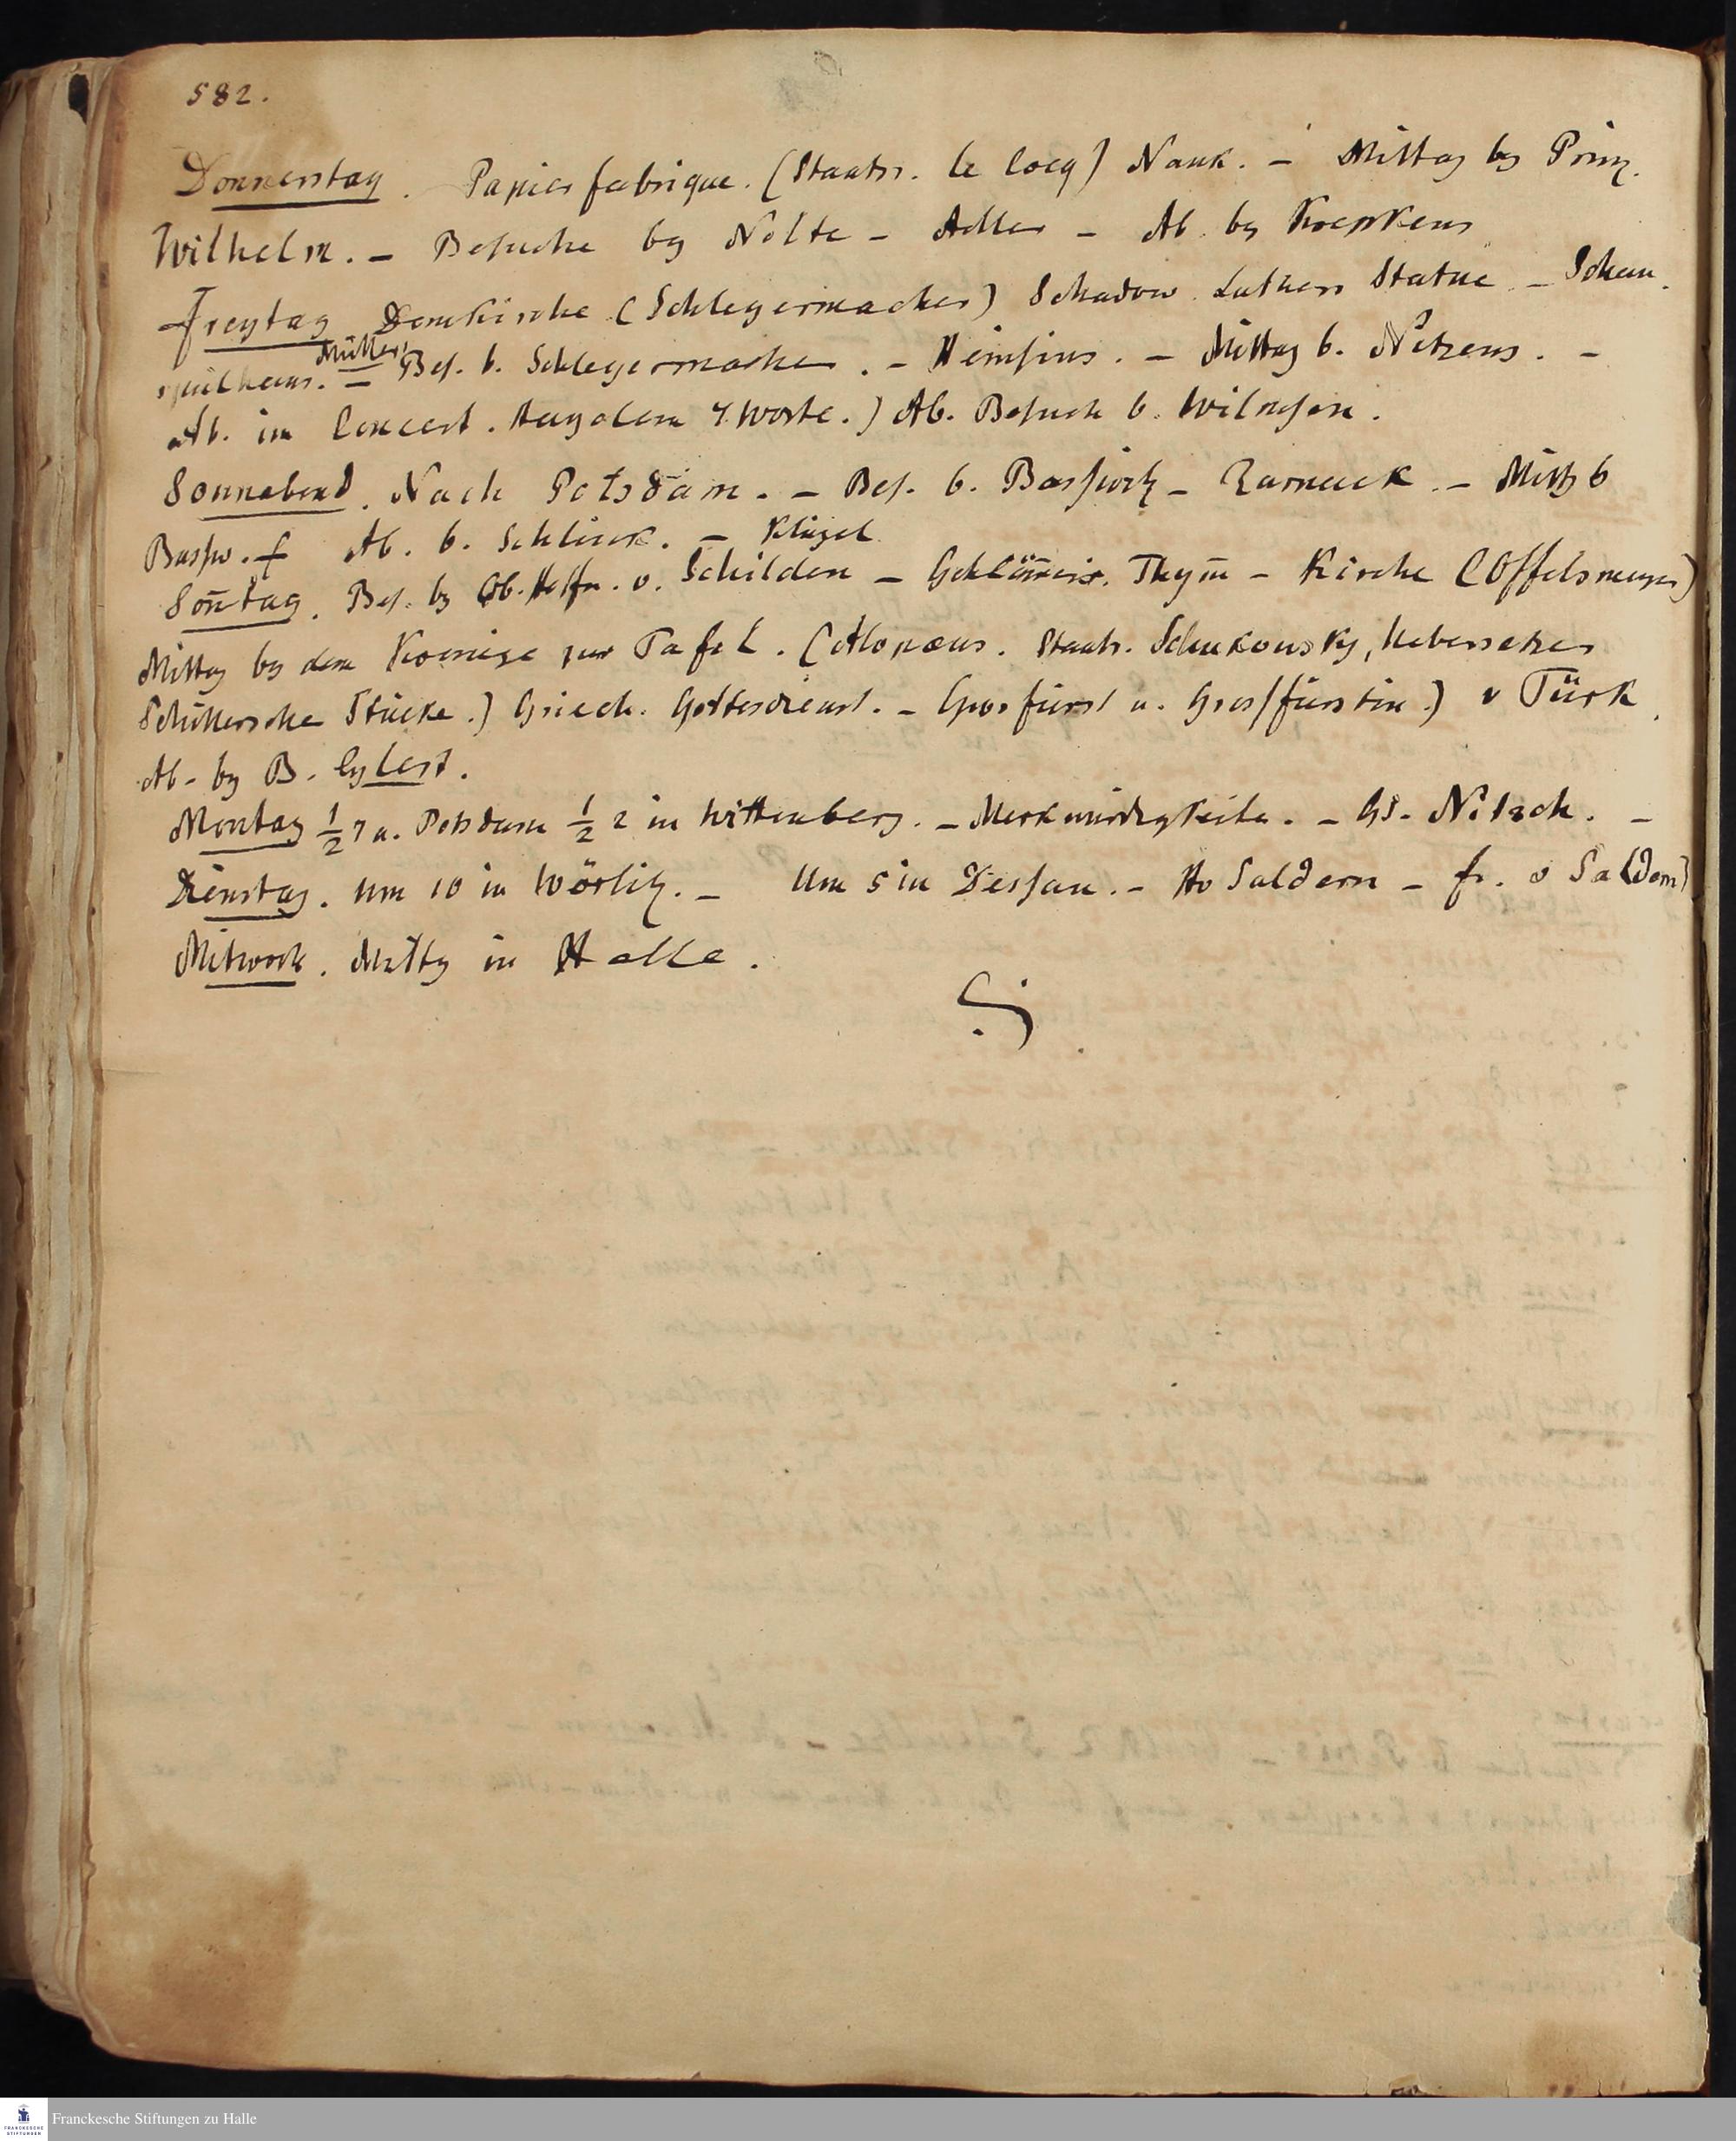 582.
Donnerstag. Papierfabrique. (Staatsr. le Cocq) Nauk. – Mittag bey Prinz.
Wilhelm. – Besuche bey Nolte – Adler – Ab. bey Koepkens
Freytag Domkirche (Schleyermacher) Schadow. Luthers Statue – Schau.
Müller
spielhaus. – Bes. b. Schleyermacher. – Heinsius. – Mittag b. –
Ab. im Concert. Haydens 7 Worte.) Ab. Besuch b. Wilmsen.
Sonnabend. Nach Potsdam. – Bes. b. Bassewitz – Zarnack. – Mittg b
Bassw. Ab. b. Schlink. – Klügel
Soñtag. Bes. bey v. Schilden – Thym̄ – Kirche (Offelsmeyer)
Mittag bey dem Koenige zur Tafel. (Alopaeus. Staatsr. Schukowsky, Uebersetzer
Schillersche Stücke.) Griech. Gottesdienst. – Grosfürst u. Grosfürstin.) v Türk.
Ab. by B. Eylert.
Montag ½ 7 a. Potsdam ½ 2 in Wittenberg. – Merkwürdigkeiten. – GS. Nitzsch. –
Dienstag. Um 10 in Wörlitz. – Um 5 in Dessau. – Hv Saldern – fr. v Saldern)
Mitwoch. Mittg in Halle.
Franckesche Stiftungen zu Halle
FRANCKESCHE
STIFTUNGEN